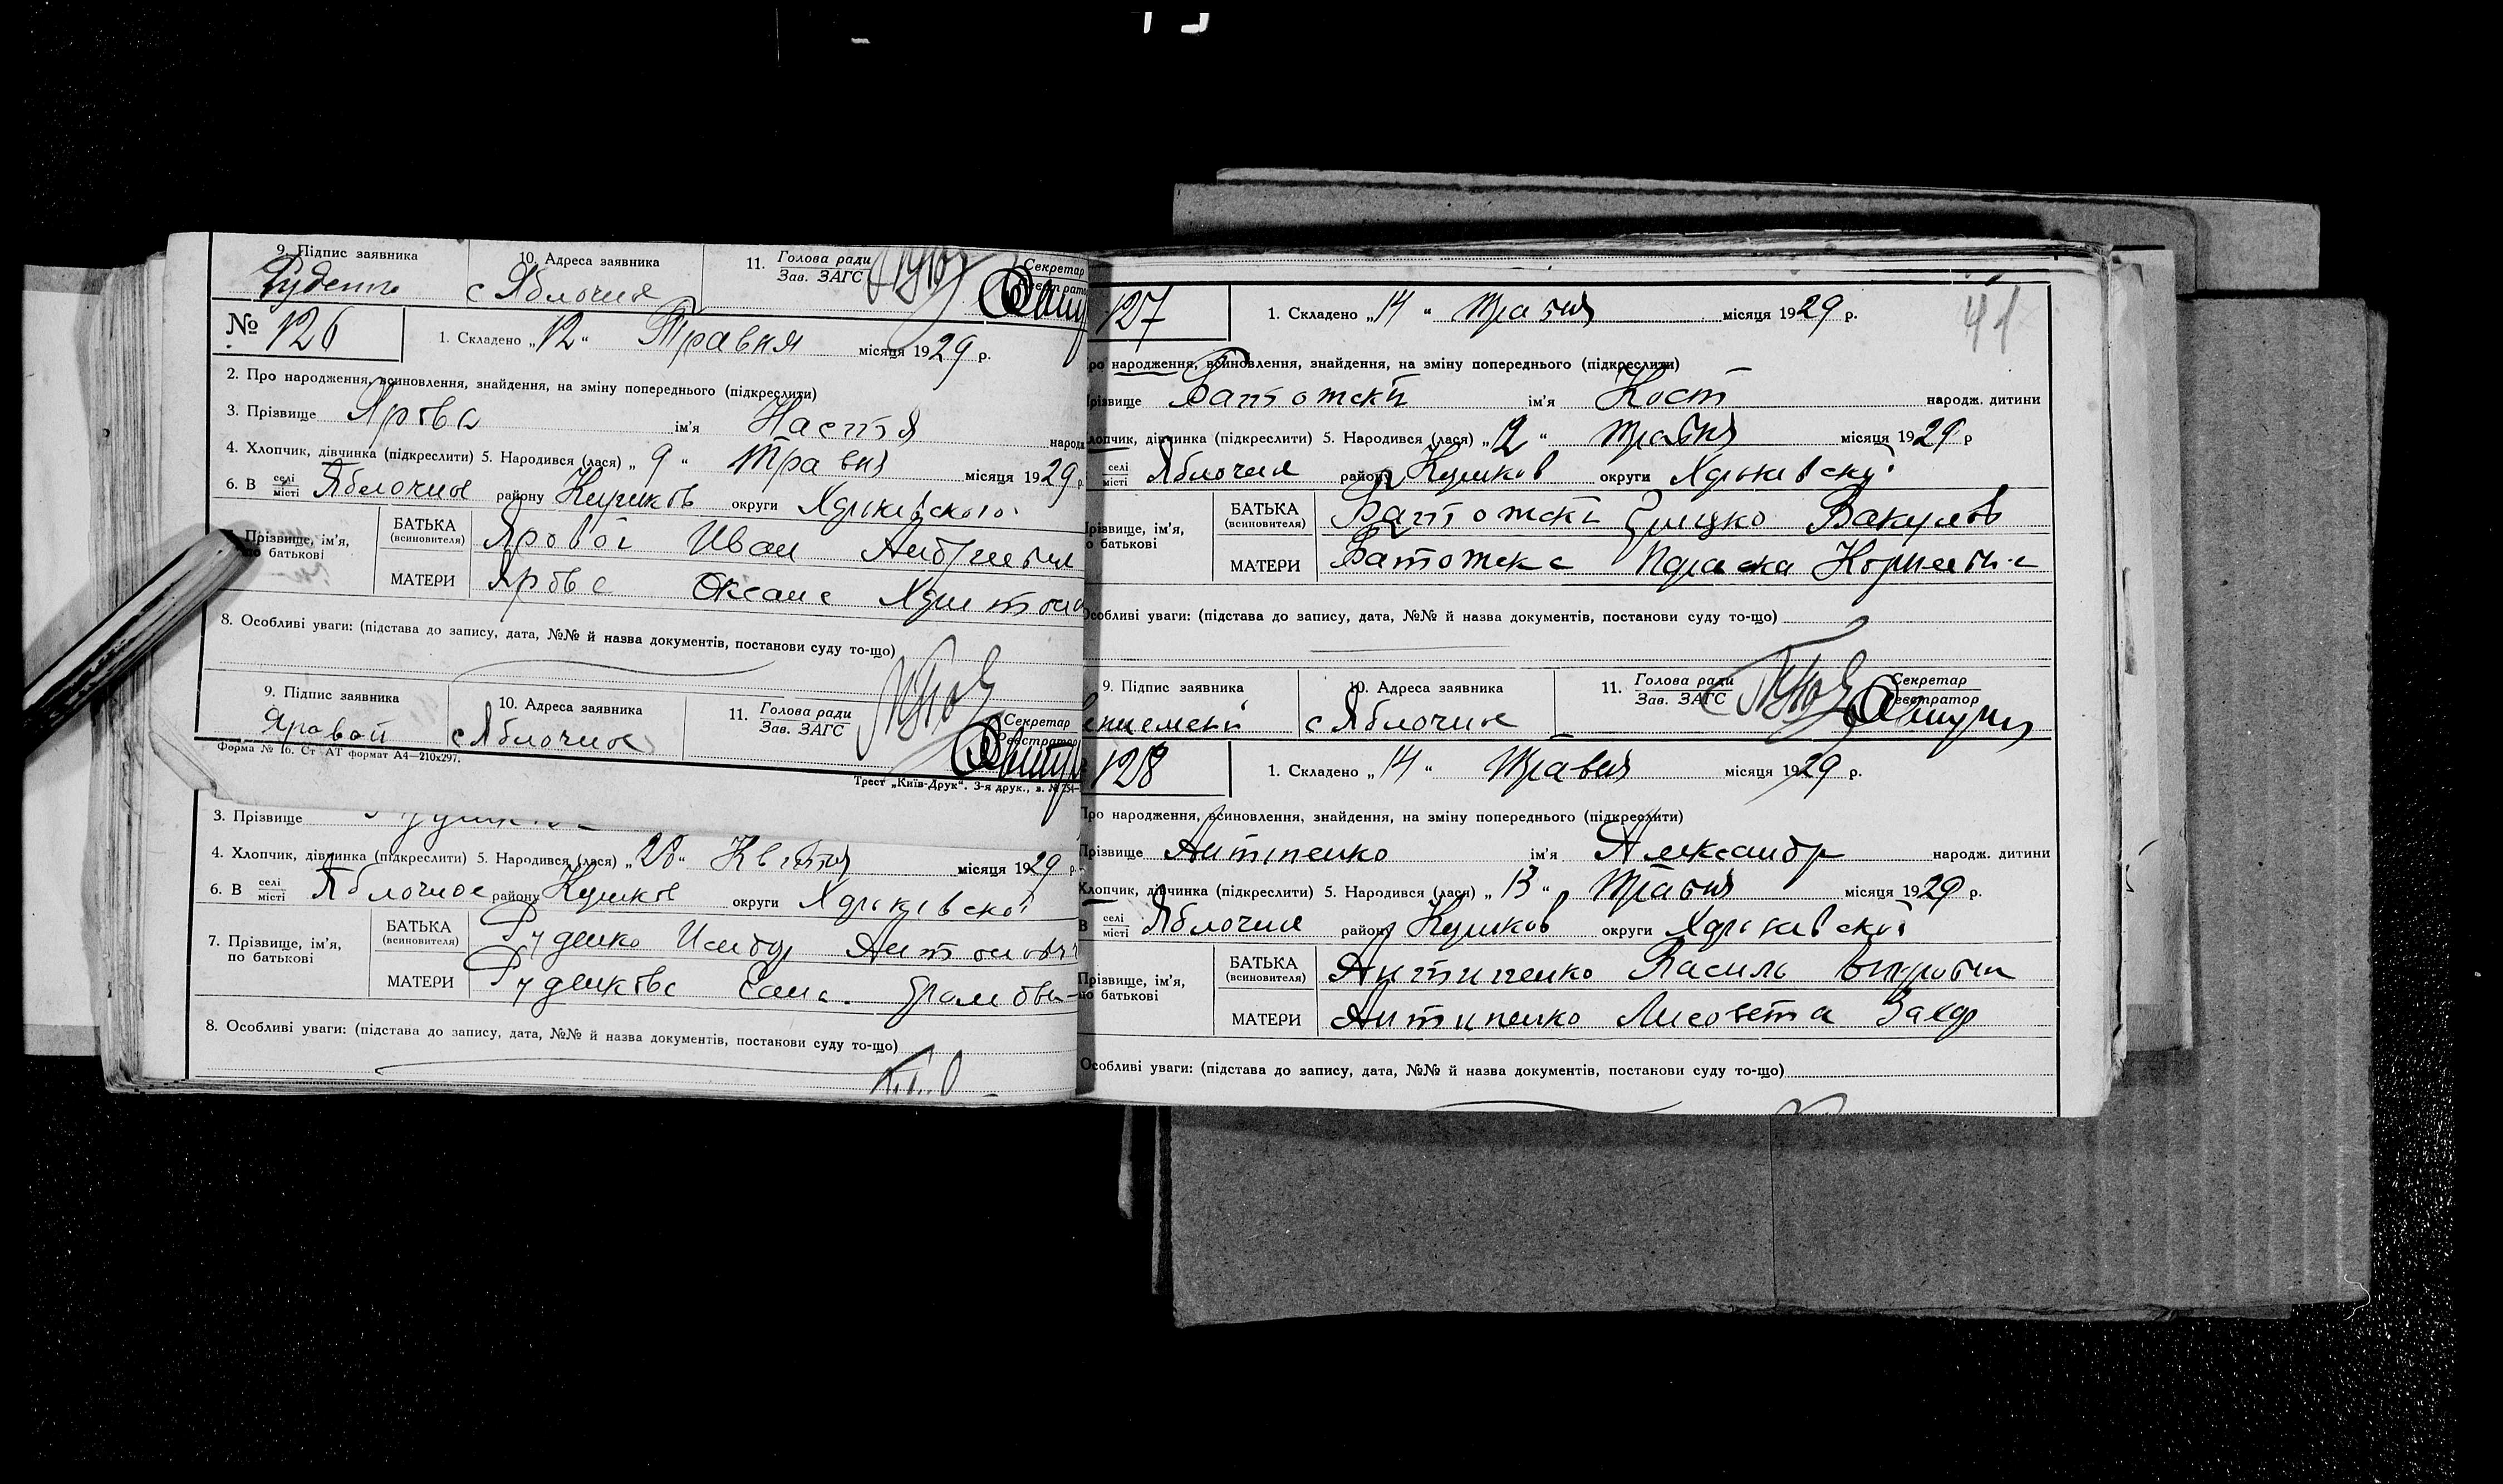 9. Підпис заявника 10. Адреса заявника 11. Голова ради Зав. ЗАГС Секретар
Руденко с Яблочне
№ 126 1. Складено „12“ Травня місяця 1929 р.
2. Про народження, всиновлення, знайдення, на зміну попереднього (підкреслити)
3. Прізвище Ярова ім'я Настя народ
4. Хлопчик, дівчинка (підкреслити) 5. Народився (лася) „9“ Травня місяця 1929 р.
6. В селі місті Яблочное району округи Харківского
Прізвище, ім'я, по батькові БАТЬКА (всиновителя) Яровоі Иван
МАТЕРИ Ярова Оксана
8. Особливі уваги: (підстава до запису, дата, №№ й назва документів, постанови суду то-що)
9. Підпис заявника 10. Адреса заявника 11. Голова ради Зав. ЗАГС Секретар Реєстратор
Яравой с Яблочное
Форма № 16. Ст АТ формат А4—210х297.
Трест „Київ-Друк“. 3-я друк., з. № 254—
3. Прізвище
4. Хлопчик, дівчинка (підкреслити) 5. Народився (лася) „28“ Квітня місяця 1929 р.
6. В селі місті Яблочное району округи Харківскоі
7. Прізвище, ім'я, по батькові БАТЬКА (всиновителя) Руденко Антонович
МАТЕРИ Руденкова
8. Особливі уваги: (підстава до запису, дата, №№ й назва документів, постанови суду то-що)
41
127 1. Складено „14“ Травня місяця 1929 р.
ро народження, всиновлення, знайдення, на зміну попереднього (підкреслити)
Прізвище ім'я Кост народж. дитини
лопчик, дівчинка (підкреслити) 5. Народився (лася) „2“ Травня місяця 1929 р
селі місті Яблочне району округи Харківскоі
Прізвище, ім'я, по батькові БАТЬКА (всиновителя) Грицко Вакулов
МАТЕРИ Параска
Особливі уваги: (підстава до запису, дата, №№ й назва документів, постанови суду то-що)
9. Підпис заявника 10. Адреса заявника 11. Голова ради Зав. ЗАГС Секретар Реєстратор
с Яблочне
128 1. Складено „14“ Травня місяця 1929 р.
Про народження, всиновлення, знайдення, на зміну попереднього (підкреслити)
Прізвище Антіпенко ім'я Александр народж. дитини
Хлопчик, дівчинка (підкреслити) 5. Народився (лася) „13“ Травня місяця 1929 р.
В селі місті Яблочне району округи Харківскоі
Прізвище, ім'я, по батькові БАТЬКА (всиновителя) Антипенко Василь
МАТЕРИ Антипенко Лисовета Захар
Особливі уваги: (підстава до запису, дата, №№ й назва документів, постанови суду то-що)